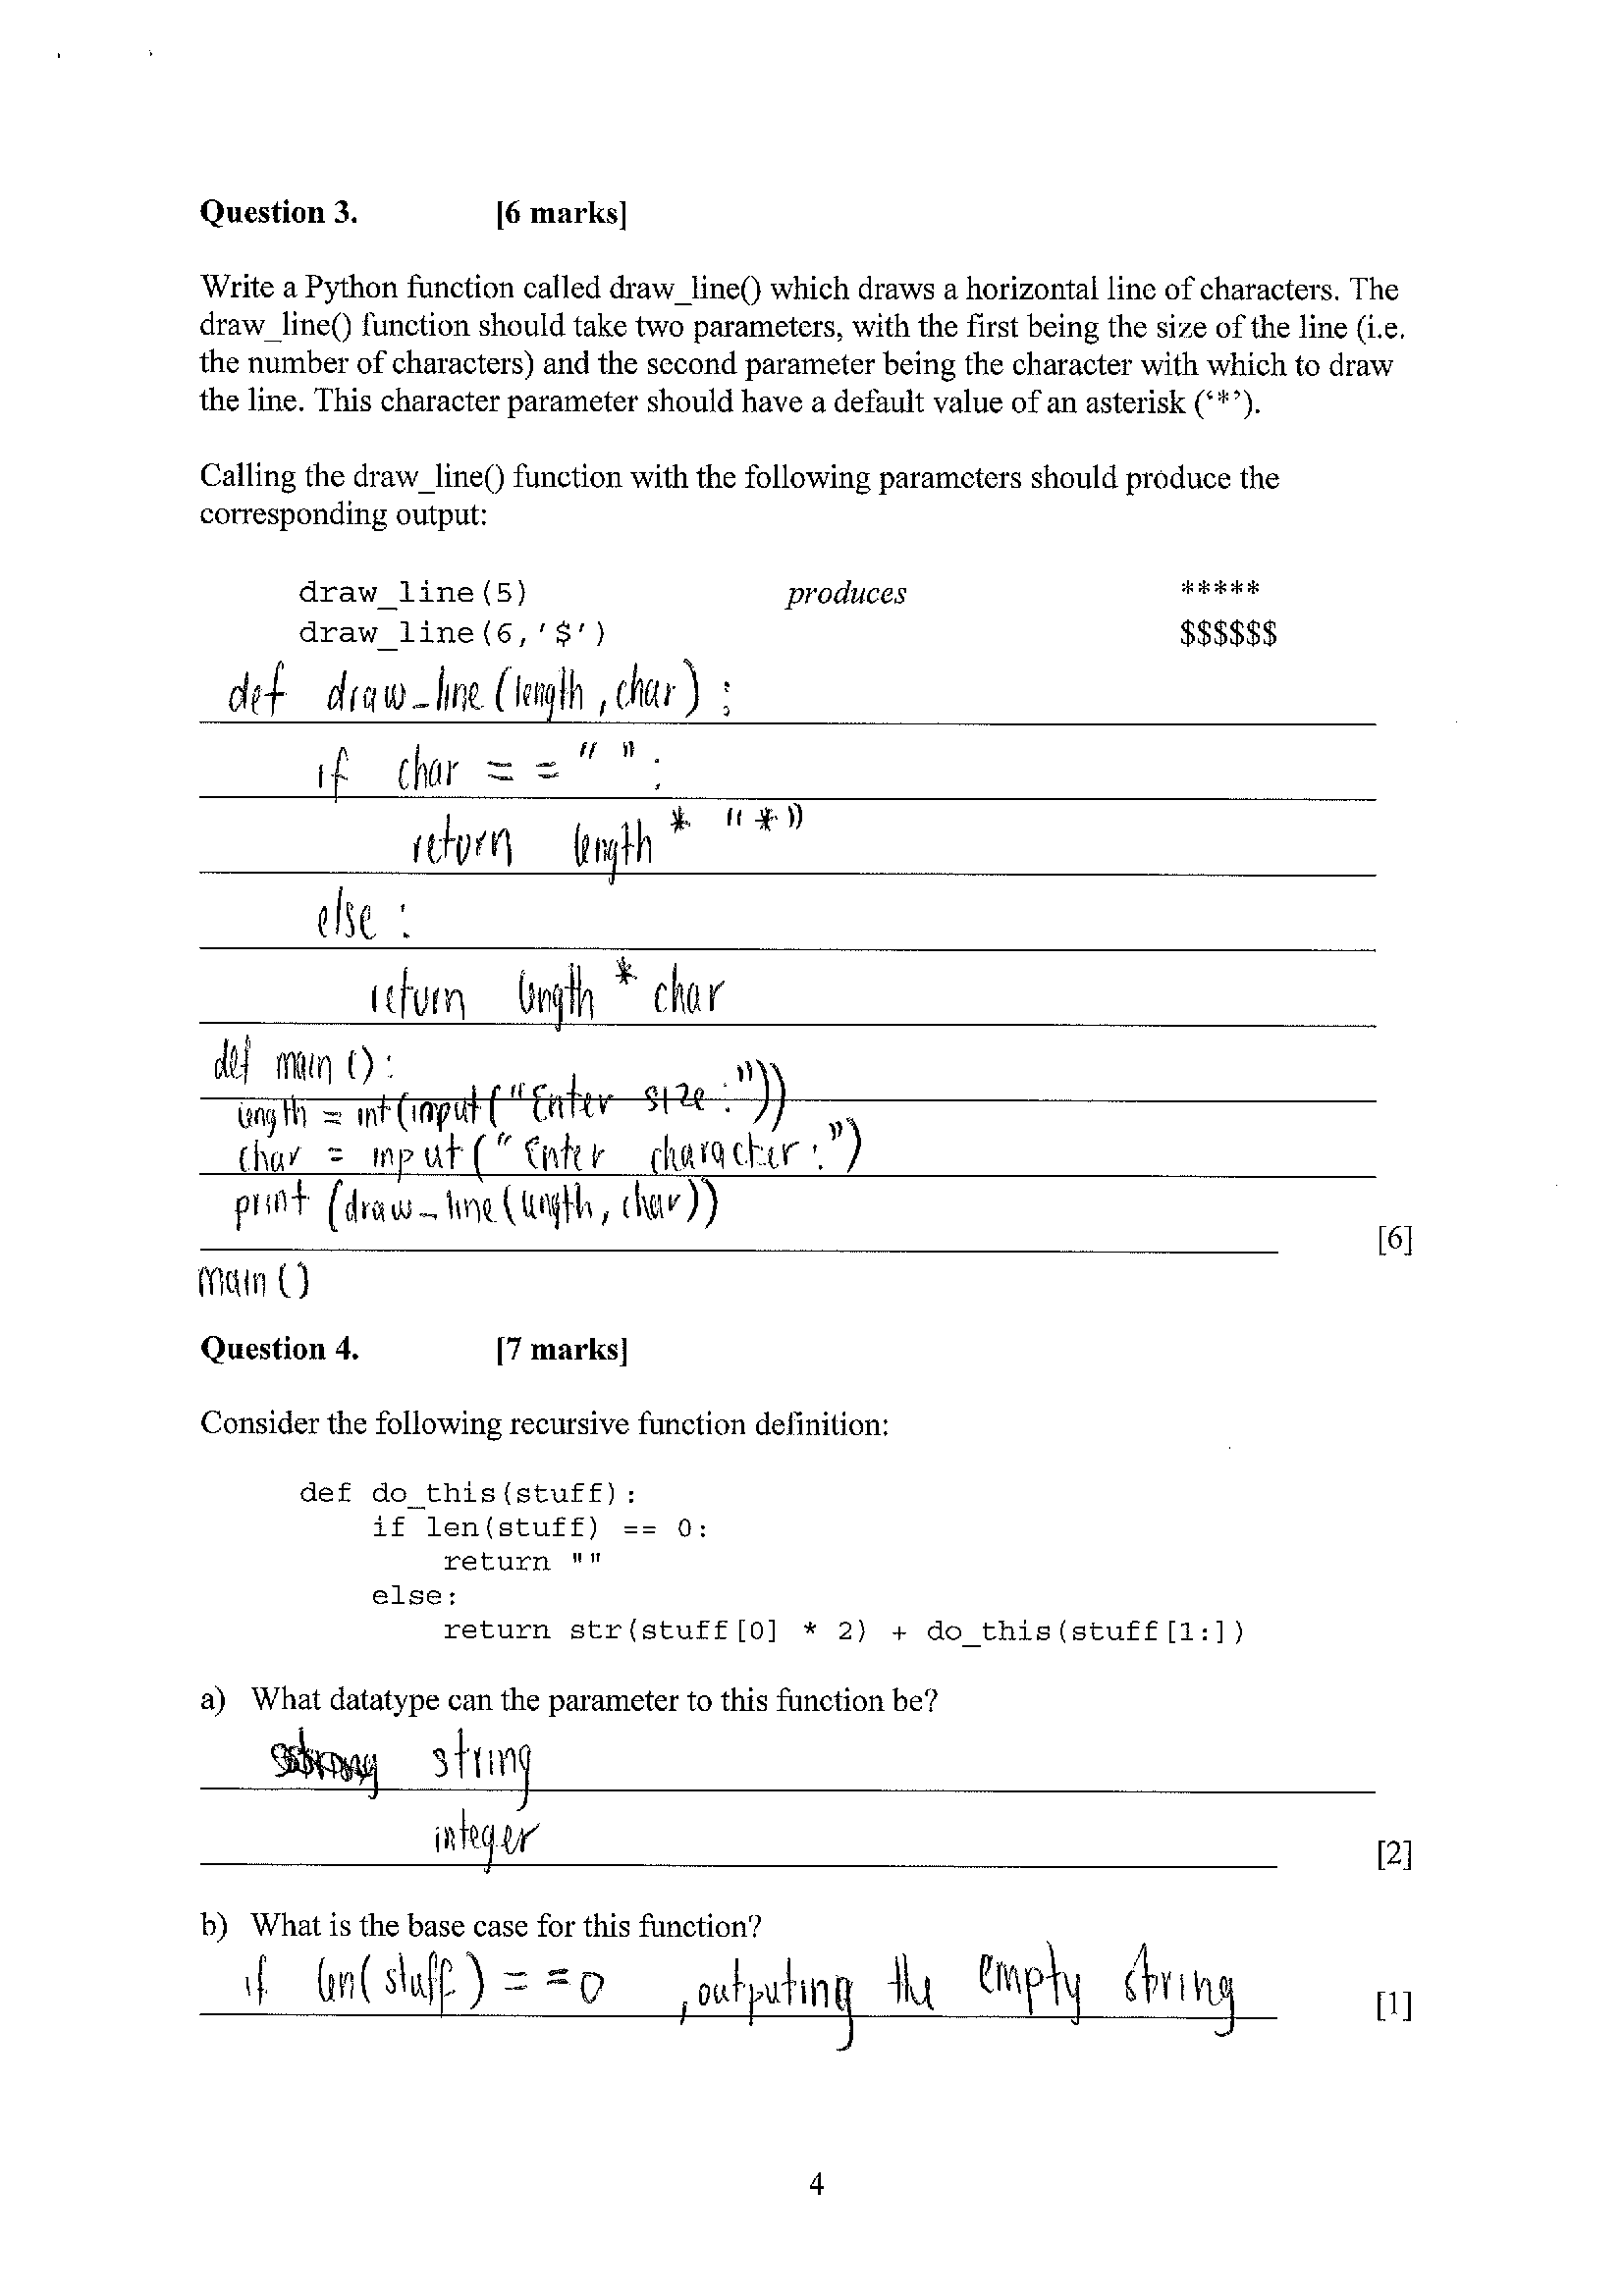 Question 3. [6 marks]
Write a Python function called draw_line() which draws a horizontal line of characters. The
draw_line() function should take two parameters, with the first being the size of the line (i.e.
the number of characters) and the second parameter being the character with which to draw
the line. This character parameter should have a default value of an asterisk (‘*’).
Calling the draw_line() function with the following parameters should produce the
corresponding output:
draw_line(5) produces *****
draw_line(6,'$') $$$$$$
def draw_line (length, char) :
if char == " " :
return length * "*"
else :
return length * char
def main () :
length = int(input("Enter size:"))
char = input("Enter character:")
print (draw_line(length, char))
[6]
main ()
Question 4. [7 marks]
Consider the following recursive function definition:
def do_this(stuff):
if len(stuff) == 0:
return ""
else:
return str(stuff[0] * 2) + do_this(stuff[1:])
a) What datatype can the parameter to this function be?
string
integer
[2]
b) What is the base case for this function?
if len(stuff) == 0 , outputing the empty string
[1]
4